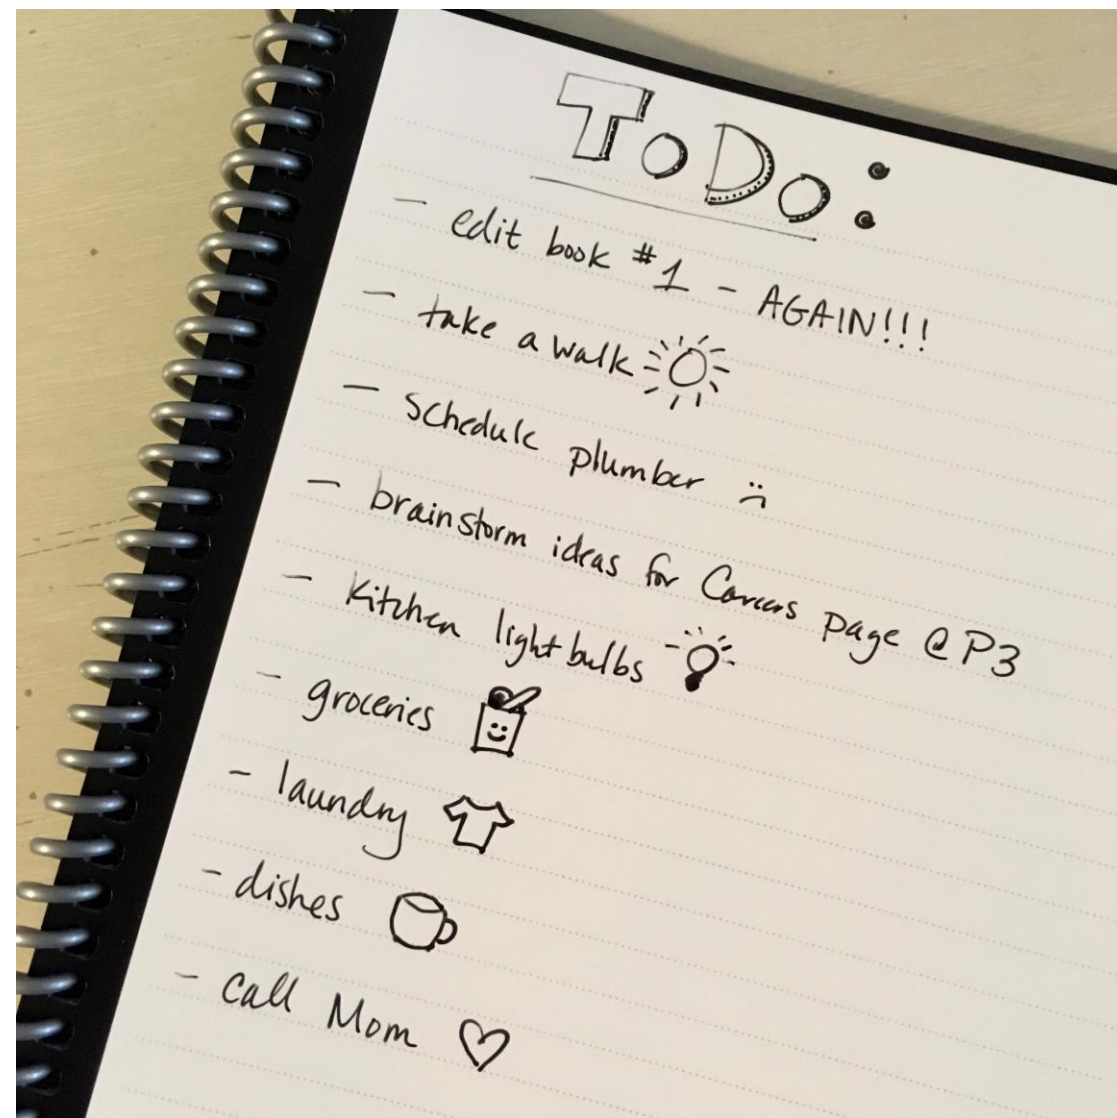 ToDo:
- edit book #1 - AGAIN!!!
- take a walk
- schedule plumber :(
- brainstorm ideas for Careers page @ P3
- Kitchen lightbulbs
- groceries
- laundry
- dishes
- call Mom